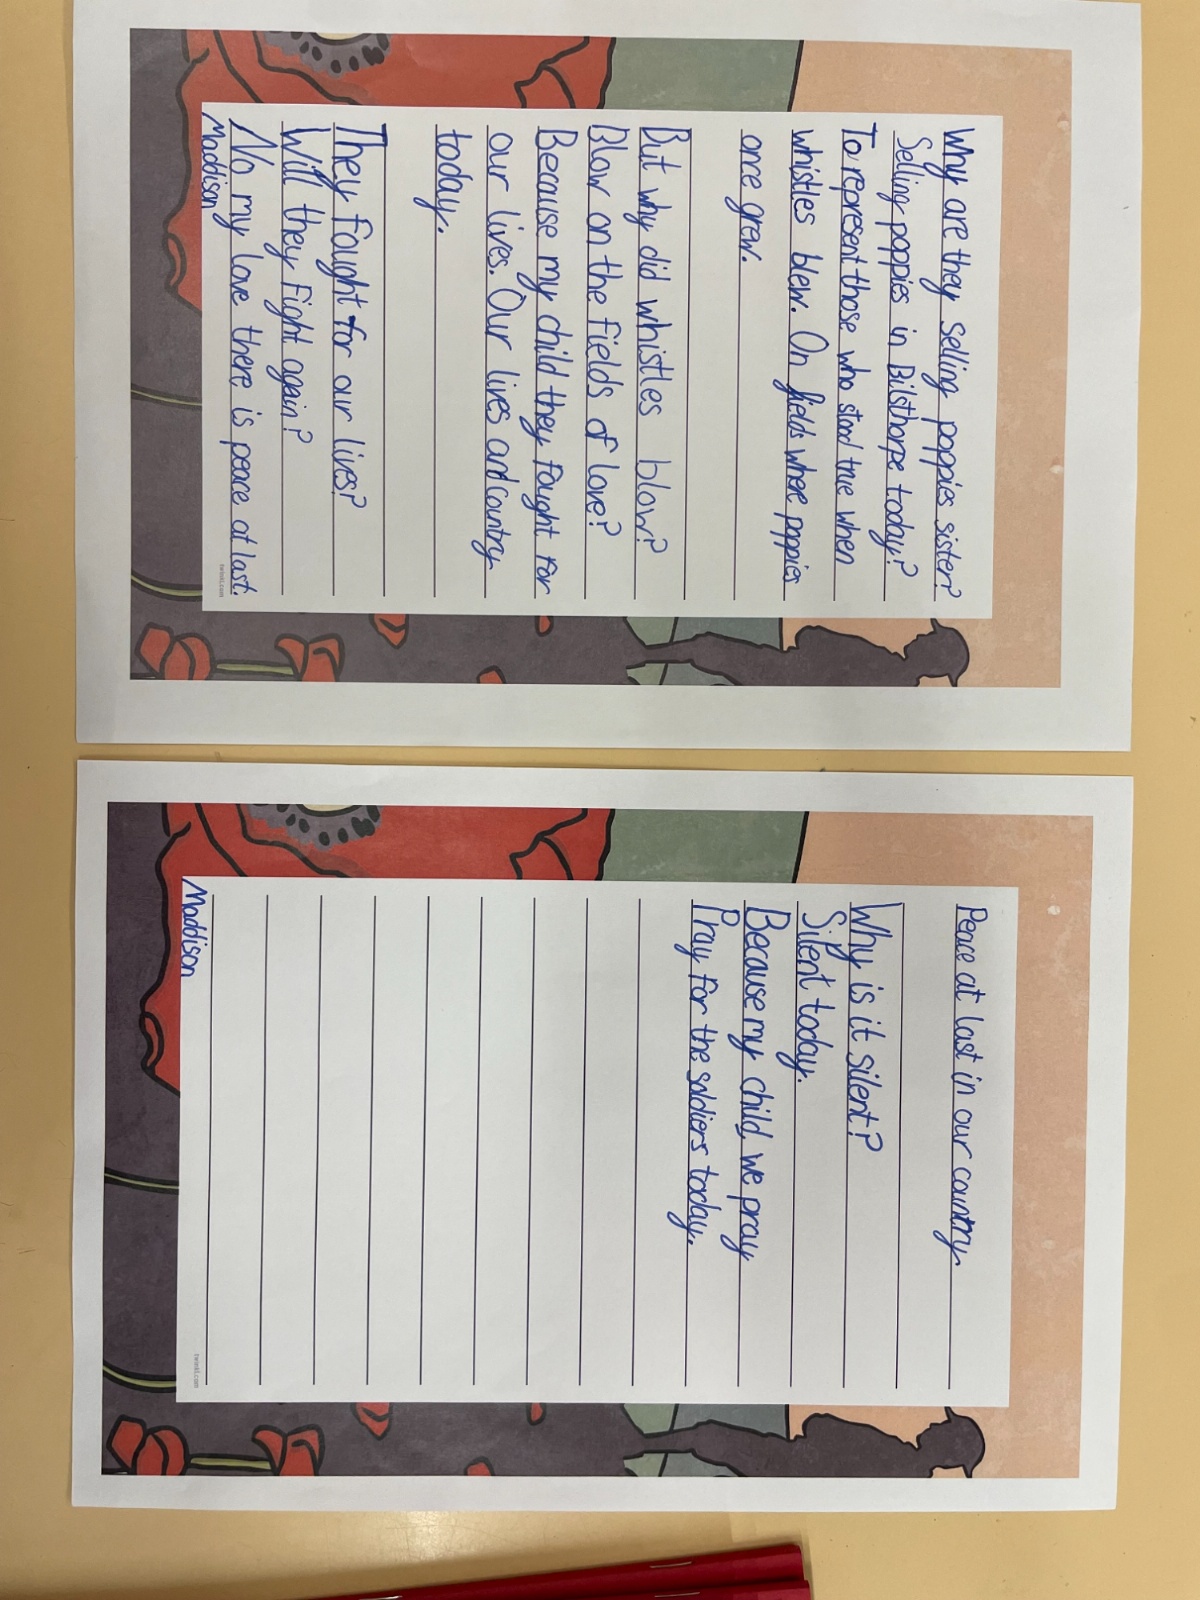 Why are they selling poppies sister?
Selling poppies in Bilsthorpe today?
To represent those who stood true when
whistles blew. On fields where poppies
once grew.
But why did whistles blow?
Blow on the fields of love?
Because my child they fought for
our lives. Our lives and country
today.
They fought for our lives?
Will they fight again?
No my love there is peace at last.
Maddison
twinkl.com
Peace at last in our country
Why is it silent?
Silent today.
Because my child, we pray
Pray for the soldiers today.
Maddison
twinkl.com